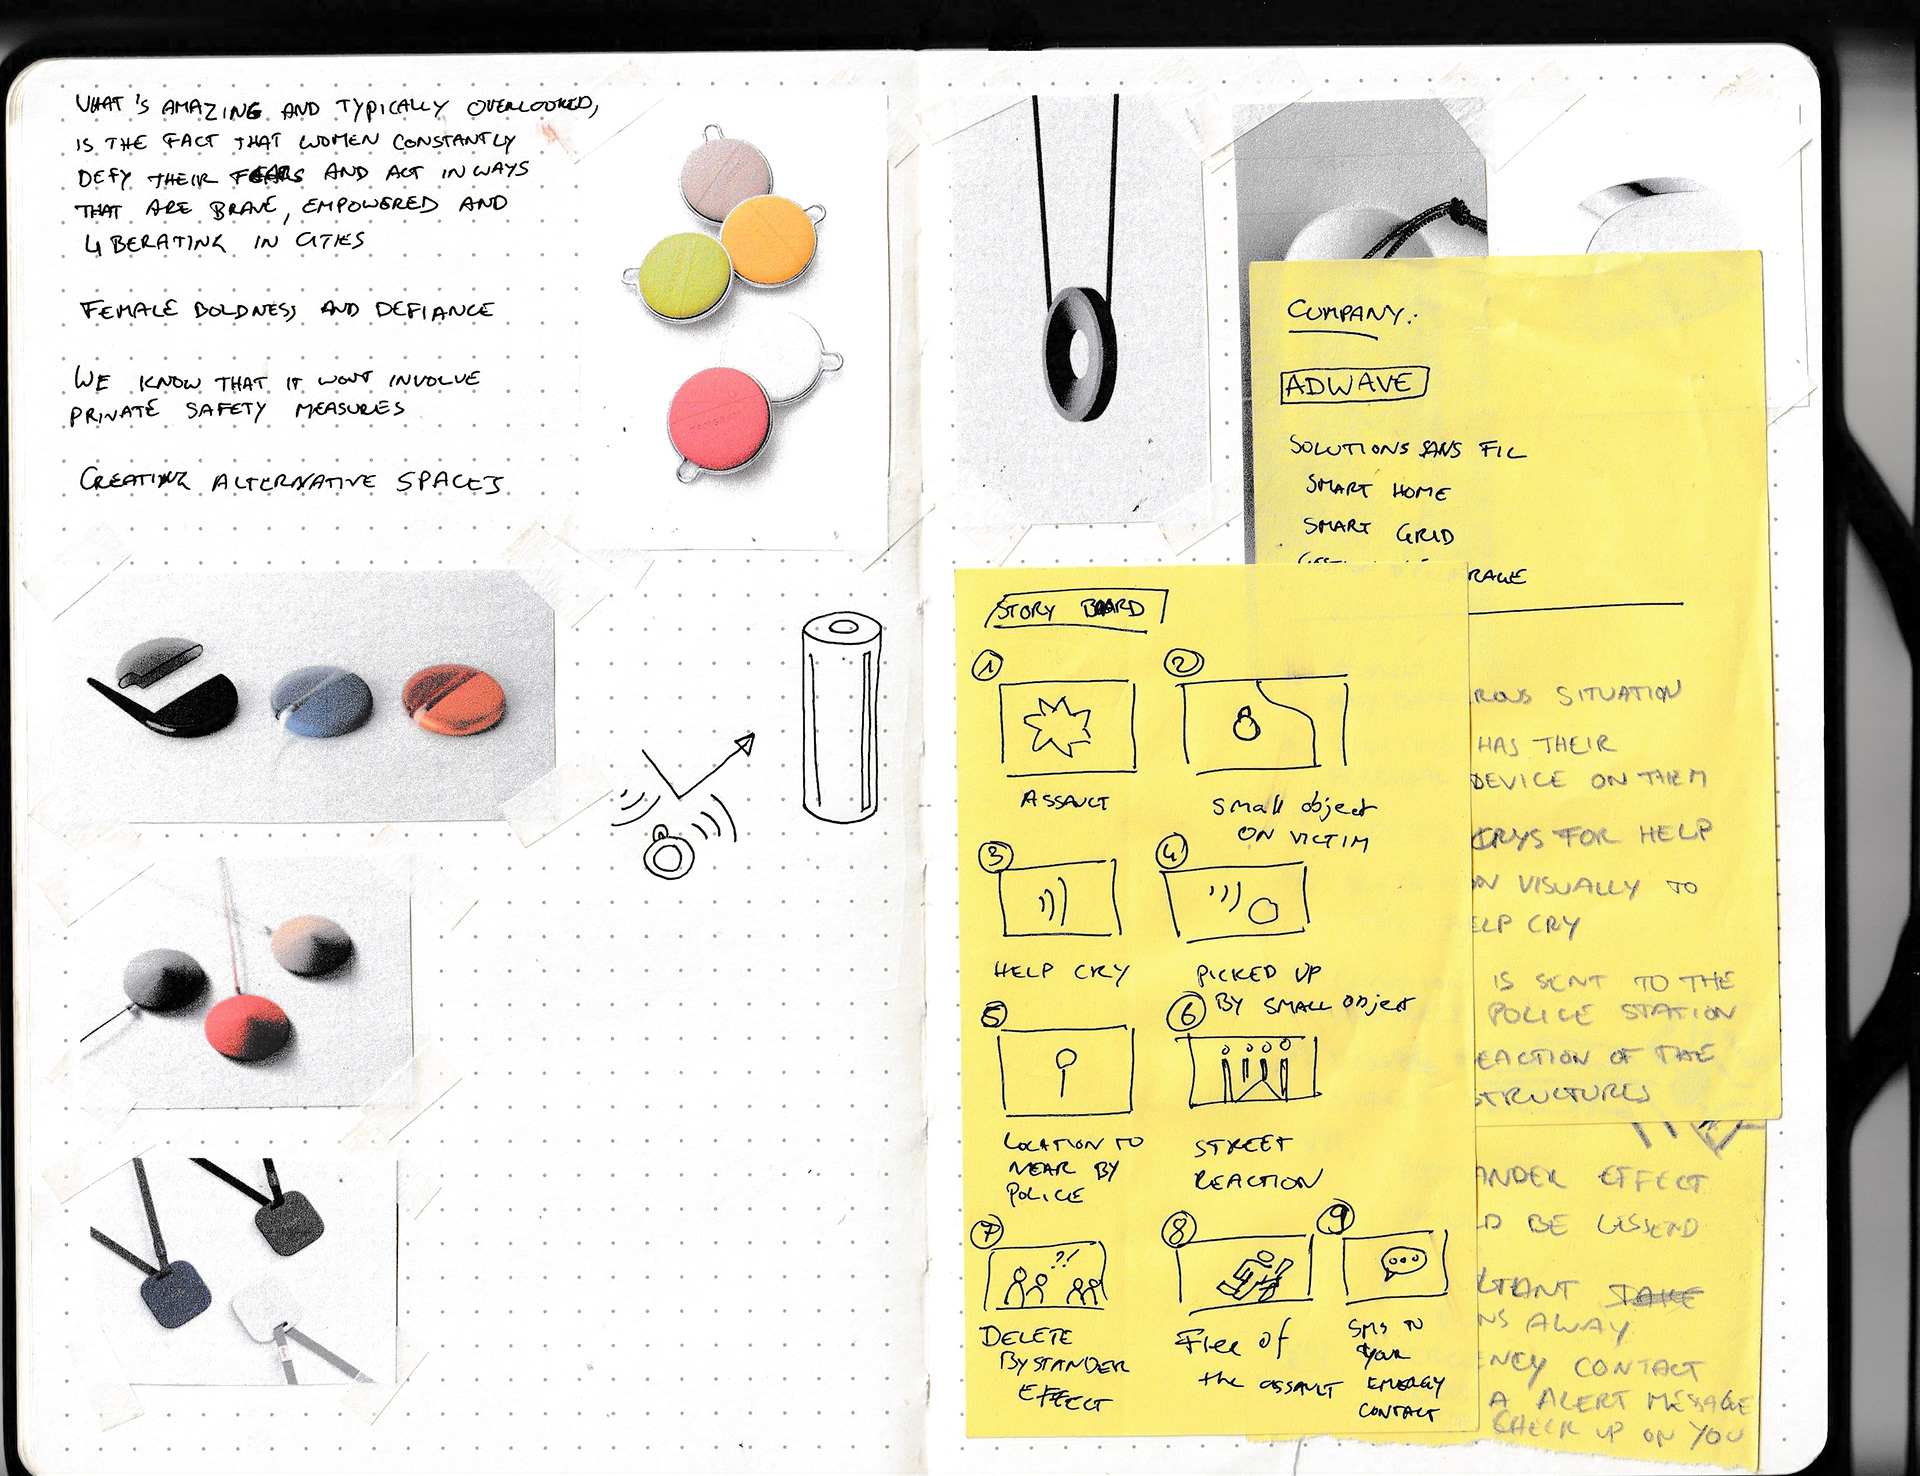 WHAT'S AMAZING AND TYPICALLY OVERLOOKED,
IS THE FACT THAT WOMEN CONSTANTLY
DEFY THEIR FEARS AND ACT IN WAYS
THAT ARE BRAVE, EMPOWERED AND
LIBERATING IN CITIES
FEMALE BOLDNESS AND DEFIANCE
WE KNOW THAT IT WONT INVOLVE
PRIVATE SAFETY MEASURES
CREATING ALTERNATIVE SPACES
COMPANY:
ADWAVE
SOLUTIONS SANS FIL
SMART HOME
SMART GRID
RAGE
ROUS SITUATION
HAS THEIR
DEVICE ON THEM
CRYS FOR HELP
ON VISUALLY TO
ELP CRY
IS SENT TO THE
POLICE STATION
EACTION OF THE
STRUCTURES
ANDER EFFECT
LD BE LESSEND
RTANT
NS AWAY
ENCY CONTACT
A ALERT MESSAGE
CHECK UP ON YOU
STORY BOARD
1
ASSAULT
2
Small object
ON VICTIM
3
HELP CRY
4
PICKED UP
BY SMALL Object
5
LOCATION TO
NEAR BY
POLICE
6
STREET
REACTION
7
?!
DELETE
BYSTANDER
EFFECT
8
Flee of
the assault
9
SMS TO
YOUR
EMERGY
CONTACT